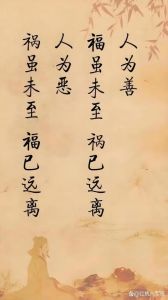 人为善
福虽未至 祸已远离
人为恶
祸虽未至 福已远离